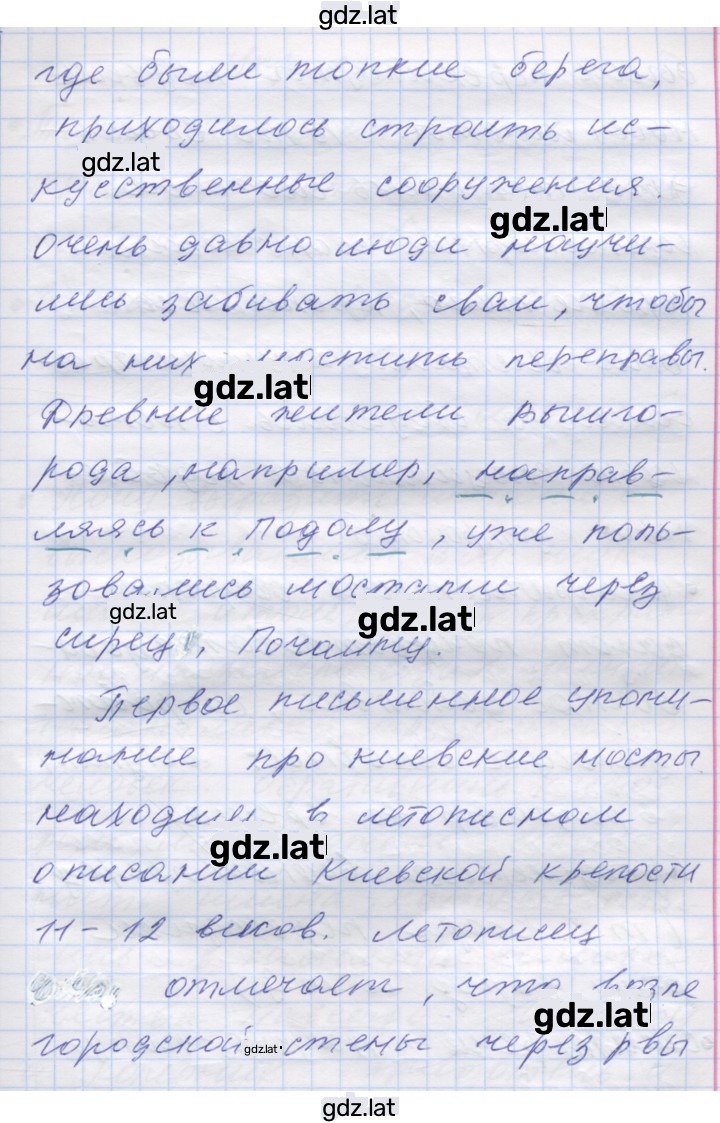 gdz.lat
где были топкие берега,
приходилось строить ис-
gdz.lat
кусственные сооружения.
gdz.lat
очень давно люди научи-
лись забивать сваи, чтобы
на них мостить переправы.
gdz.lat
Древние жители Вышго-
рода, например, направ-
ляясь к Подолу, уже поль-
зовались мостами через
gdz.lat
gdz.lat
сирец, Почайну.
Первое письменное упоми-
нание про киевские мосты
находим в летописном
gdz.lat
описании Киевской крепости
11-12 веков. летописец
отмечает, что возле
gdz.lat
городской стены через рвы
gdz.lat
gdz.lat